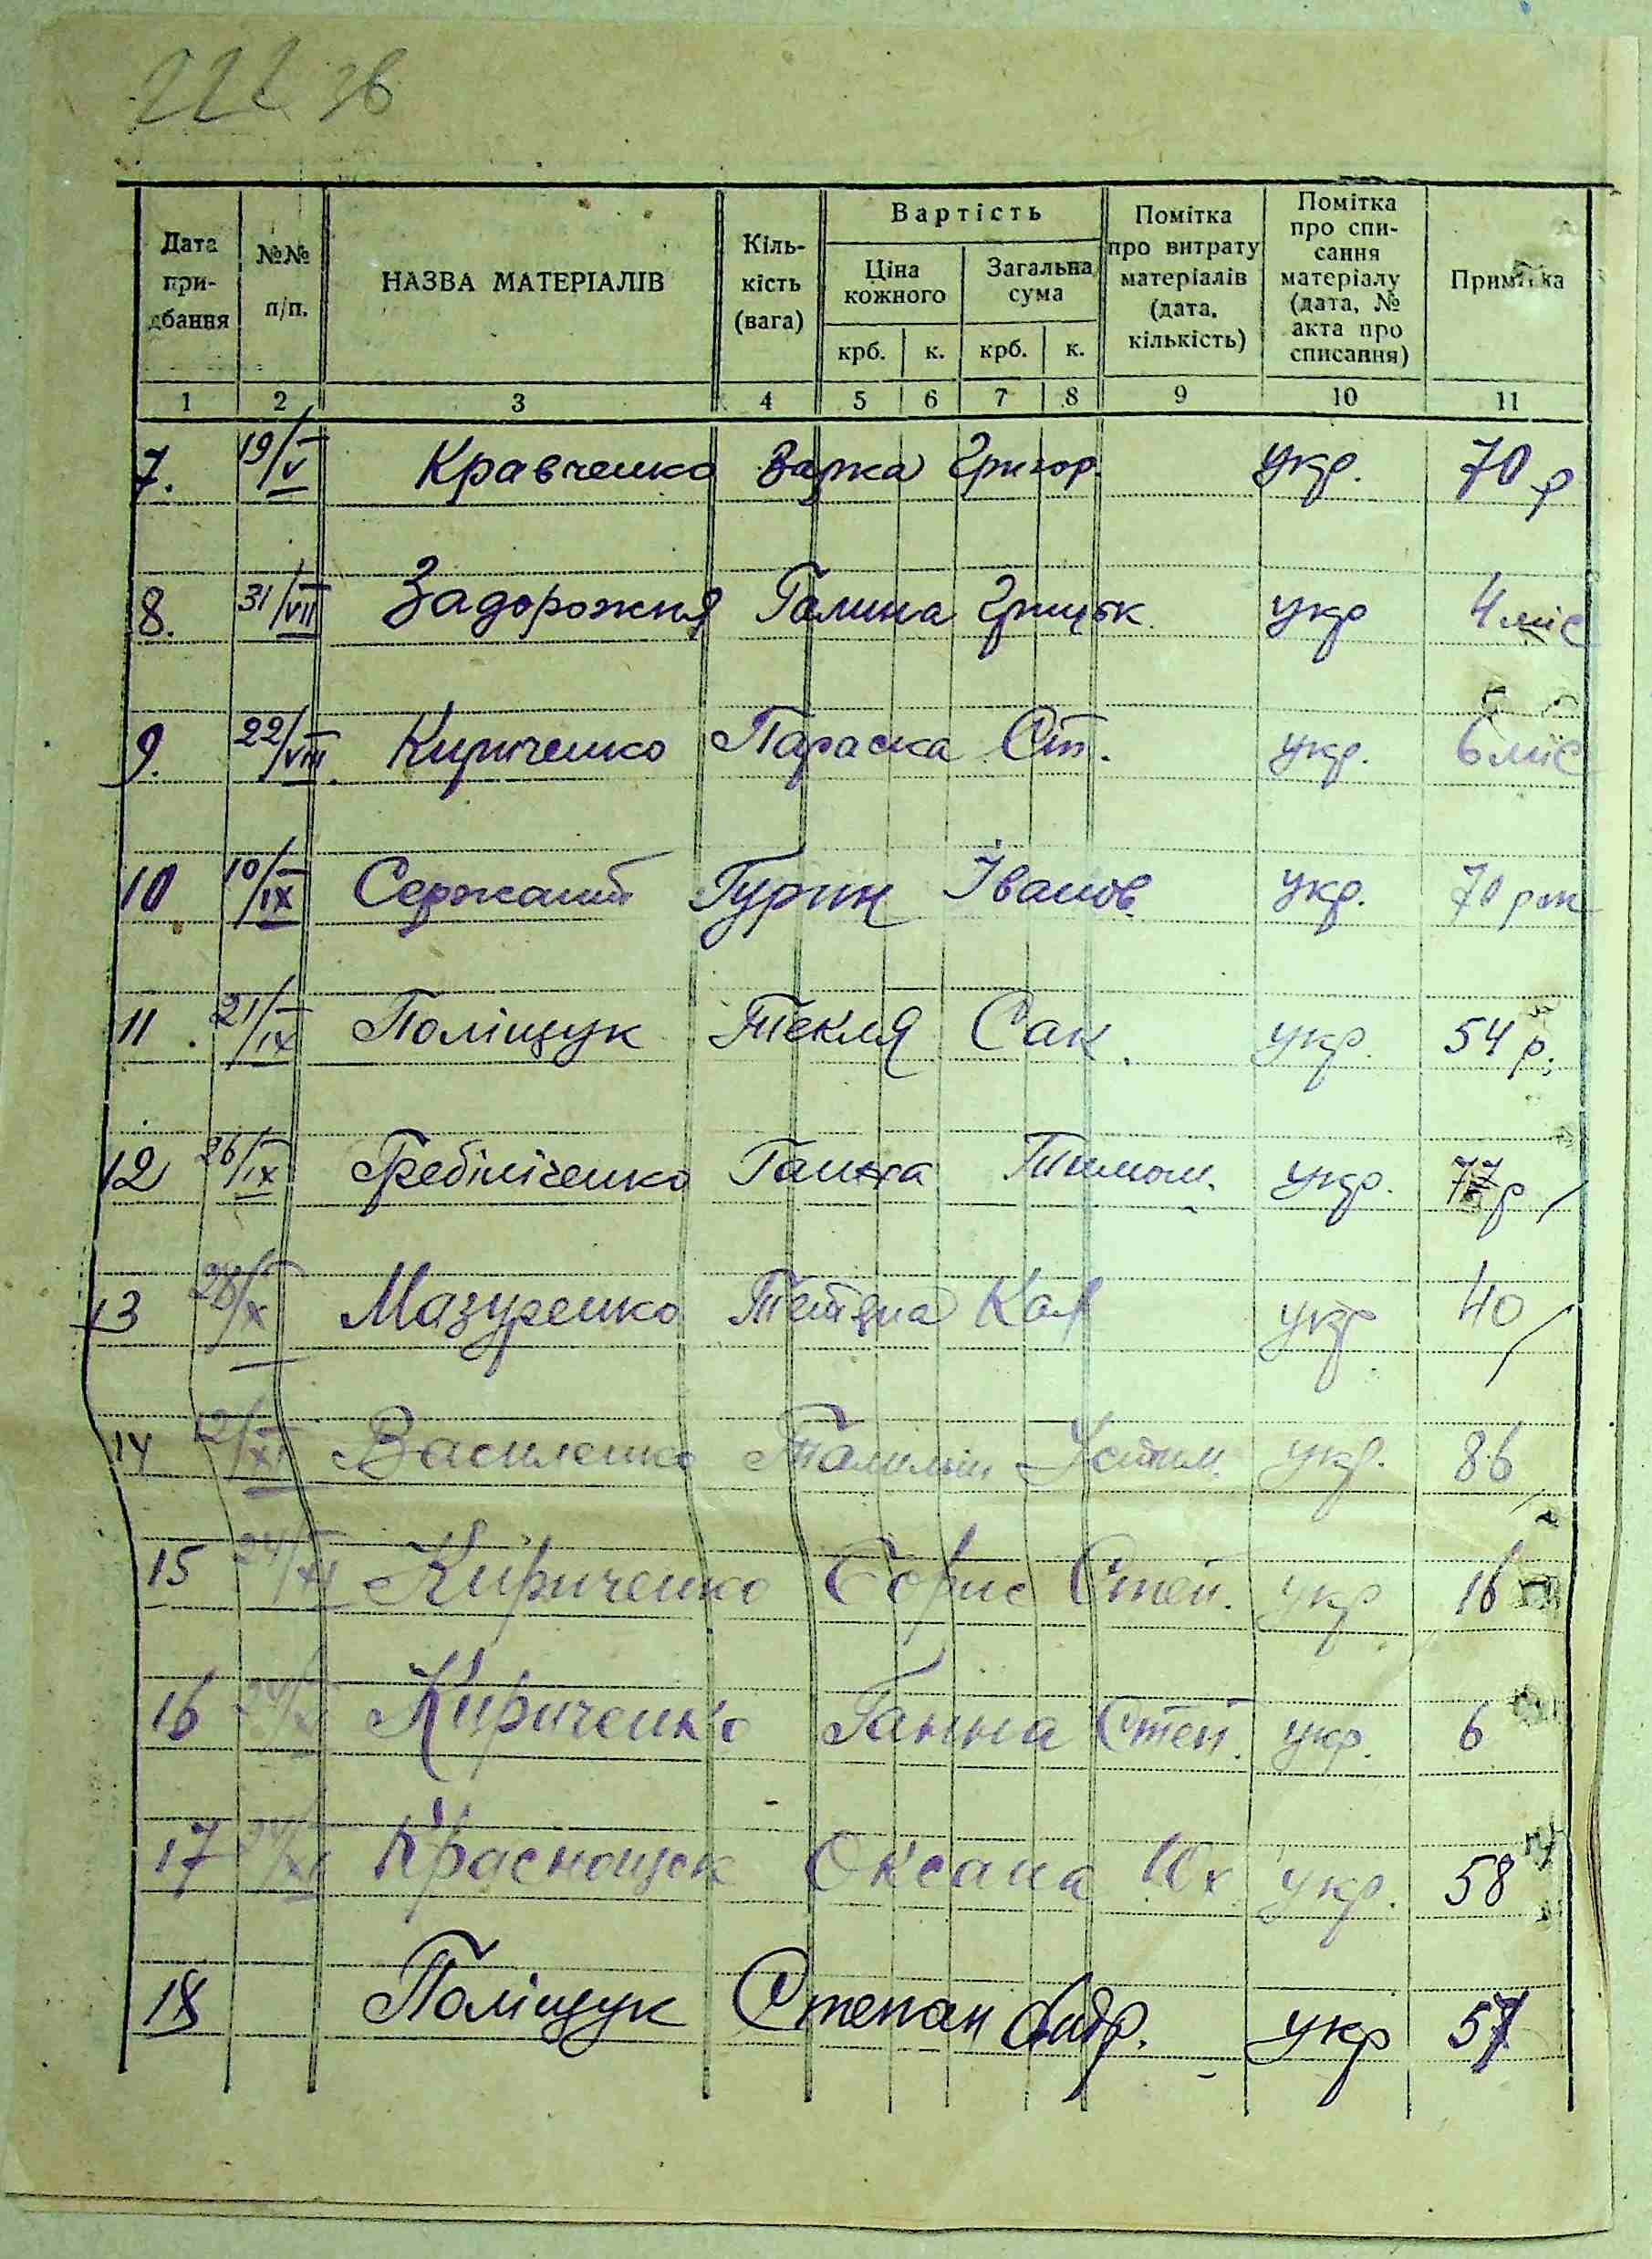 222 зв
Дата при-дбання №№ п/п. НАЗВА МАТЕРІАЛІВ Кіль-кість (вага) Вартість Ціна кожного крб. к. Загальна сума крб. к. Помітка про витрату матеріалів (дата, кількість) Помітка про спи-сання матеріалу (дата, № акта про списання) Примітка
1 2 3 4 5 6 7 8 9 10 11
7. 19/V Кравченко Варка Григор. укр. 70 р
8. 31/VII Задорожня Галина Грицьк. укр 4 міс
9. 22/VIII. Кириченко Параска Ст. укр. 6 міс
10 10/IX Сержант Гурин Іванов. укр. 70 рок
11. 21/IX Поліщук Текля Сак. укр. 54 р.
12 26/IX Гребініченко Ганна Тимош. укр. 77 р
13 28/X Мазуренко Тетяна Кал укр 40
14 12/XI Василенко Устим. укр. 86
15 24/XI Кириченко Борис Степ. укр 16
16 Кириченко Ганна Степ. укр. 6
17 Краснощок Оксана Юх укр. 58
18 Поліщук Степан Андр. укр 57